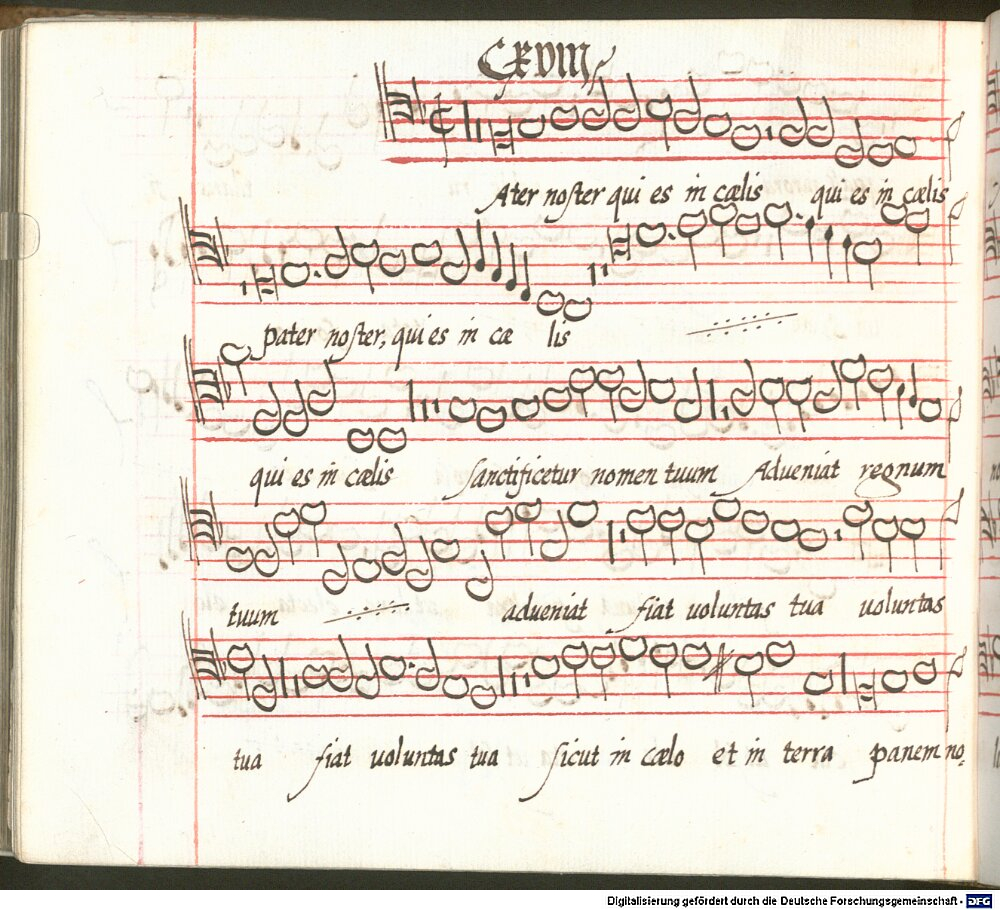 CXVIII
Ater noster qui es in cælis qui es in cælis
pater noster, qui es in cæ lis
qui es in cælis sanctificetur nomen tuum Adueniat regnum
tuum adueniat fiat uoluntas tua uoluntas
tua fiat uoluntas tua sicut in cælo et in terra panem no,
Digitalisierung gefördert durch die Deutsche Forschungsgemeinschaft - DFG